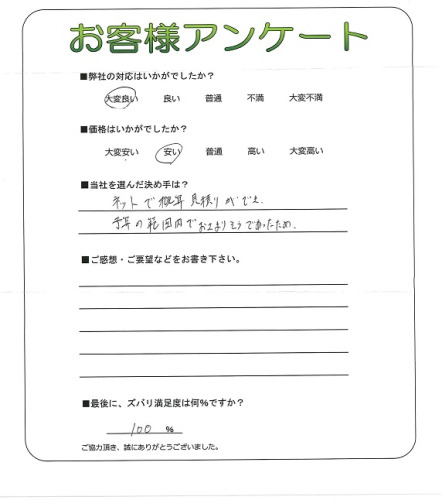 お客様アンケート
■弊社の対応はいかがでしたか？
大変良い 良い 普通 不満 大変不満
■価格はいかがでしたか？
大変安い 安い 普通 高い 大変高い
■当社を選んだ決め手は？
ネットで概算見積りができ、
予算の範囲内でおさまりそうであったため。
■ご感想・ご要望などをお書き下さい。
■最後に、ズバリ満足度は何%ですか？
100 %
ご協力頂き、誠にありがとうございました。